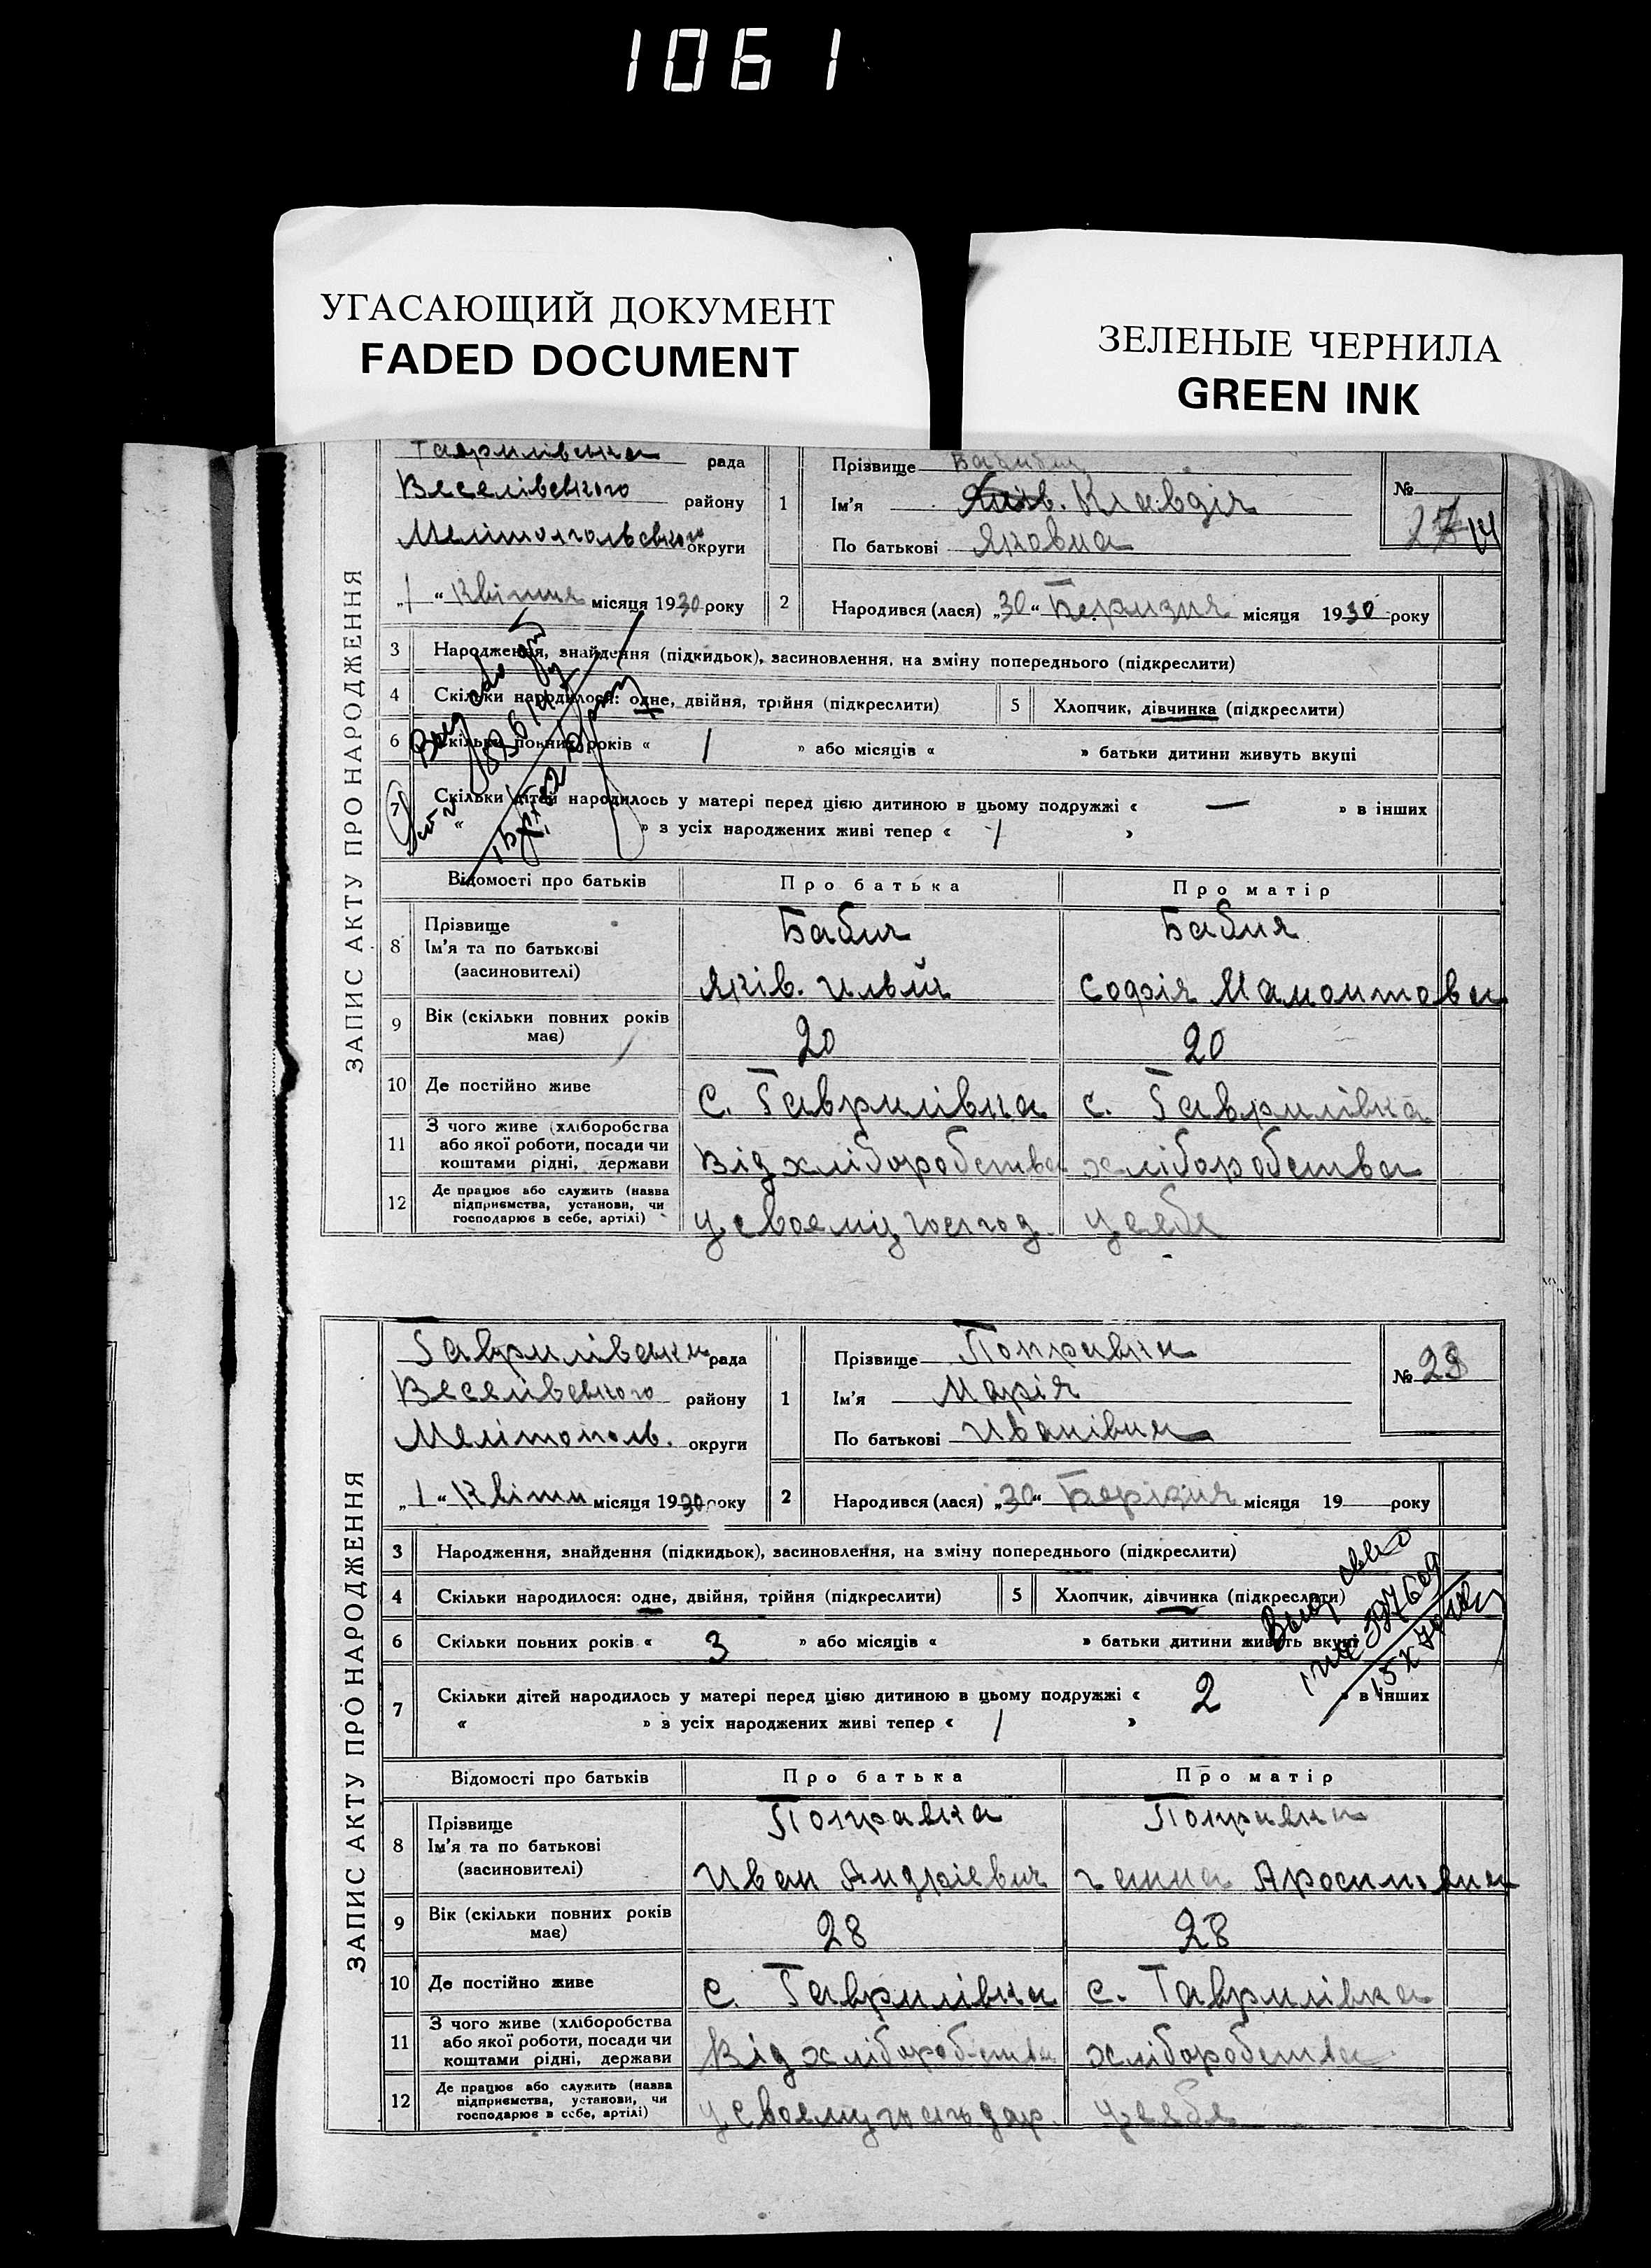 1061
УГАСАЮЩИЙ ДОКУМЕНТ
FADED DOCUMENT
ЗЕЛЕНЫЕ ЧЕРНИЛА
GREEN INK
ЗАПИС АКТУ ПРО НАРОДЖЕННЯ
Гаврилівська рада
Веселівського району
Мелітопольського округи
„1“ Квітня місяця 1930 року
1 Прізвище
Ім'я Клавдія
По батькові Яковна
№ 27 14
2 Народився (лася) „30“ Березня місяця 1930 року
3 Народження, знайдення (підкидьок), засиновлення, на зміну попереднього (підкреслити)
4 Скільки народилося: одне, двійня, трійня (підкреслити)
5 Хлопчик, дівчинка (підкреслити)
6 Скільки повних років « 1 » або місяців « » батьки дитини живуть вкупі
7 Скільки дітей народилось у матері перед цією дитиною в цьому подружжі « — » в інших
« » з усіх народжених живі тепер « 1 »
Відомості про батьків Про батька Про матір
8 Прізвище
Ім'я та по батькові
(засиновителі)
Бабич
Яків.
Бабич
Софія Мамонтовна
9 Вік (скільки повних років має) 20 20
10 Де постійно живе с. Гаврилівка с. Гаврилівка
11 З чого живе (хліборобства
або якої роботи, посади чи
коштами рідні, держави
Від хліборобства хліборобства
12 Де працює або служить (назва
підприємства, установи, чи
господарює в себе, артілі)
у своему господ. у себе
ЗАПИС АКТУ ПРО НАРОДЖЕННЯ
Гаврилівська рада
Веселівського району
Мелітополь. округи
„1“ Квітн місяця 1930 року
1 Прізвище Поправка
Ім'я Марія
По батькові Иванівна
№ 28
2 Народився (лася) „30“ Берізня місяця 19 року
3 Народження, знайдення (підкидьок), засиновлення, на зміну попереднього (підкреслити)
4 Скільки народилося: одне, двійня, трійня (підкреслити)
5 Хлопчик, дівчинка (підкреслити)
6 Скільки повних років « 3 » або місяців « » батьки дитини живуть вкупі
7 Скільки дітей народилось у матері перед цією дитиною в цьому подружжі « 2 » в інших
« » з усіх народжених живі тепер « 1 »
Відомості про батьків Про батька Про матір
8 Прізвище
Ім'я та по батькові
(засиновителі)
Поправка
Иван Андріевич
Поправка
Ганна
9 Вік (скільки повних років має) 28 28
10 Де постійно живе с. Гаврилівка с. Гаврилівка
11 З чого живе (хліборобства
або якої роботи, посади чи
коштами рідні, держави
Від хліборобства хліборобства
12 Де працює або служить (назва
підприємства, установи, чи
господарює в себе, артілі)
у своему господар. у себе